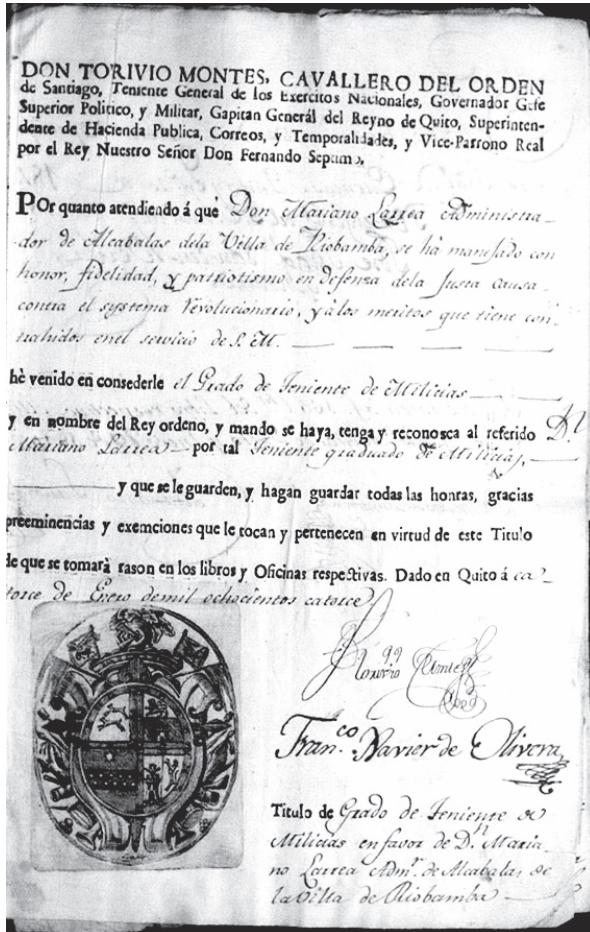 DON TORIVIO MONTES, CAVALLERO DEL ORDEN
de Santiago, Teniente General de los Exercitos Nacionales, Governador Gefe
Superior Politico, y Militar, Capitan Generál del Reyno de Quito, Superinten-
dente de Hacienda Publica, Correos, y Temporalidades, y Vice-Patrono Real
por el Rey Nuestro Señor Don Fernando Septimo,
POr quanto atendiendo á que Don Mariano Larrea Administra-
dor de Alcabalas dela Villa de Riobamba, se há manejado con
honor, fidelidad, y patriotismo en defenza dela Justa Causa
contra el systema revolucionario, y álos meritos que tiene con-
trahidos enel servicio de S. M.
hè venido en consederle el Grado de Teniente de Milicias
y en nombre del Rey ordeno, y mando se haya, tenga y reconosca al referido Dn
Mariano Larrea por tal Teniente graduado de Milicias,
y que se le guarden, y hagan guardar todas las honras, gracias
preeminencias y exemciones que le tocan y pertenecen en virtud de este Titulo
de que se tomarà rason en los libros y Oficinas respectivas. Dado en Quito á ca-
torce de Enero demil ochocientos catorce
Torivio Montes
Franco. Xavier de Olivera
Titulo de Grado de Teniente de
Milicias en favor de Dn. Maria-
no Larrea Admr. de Alcabalas de
la Villa de Riobamba